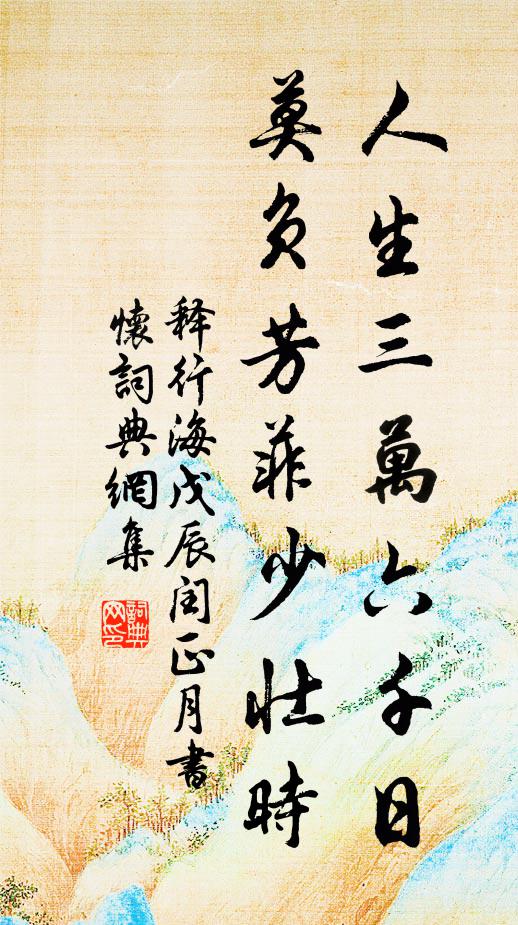 人生三萬六千日
莫負芳菲少壯時
释行海戊辰闰正月書
懷詞典網集
詞典
网印